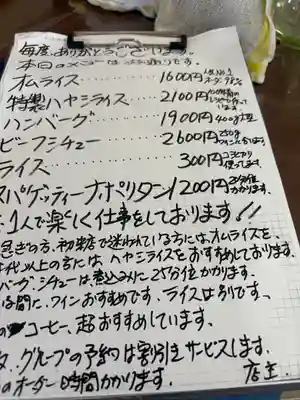 毎度、ありがとうございます。
本日のメニューは
オムライス 1600円
特製ハヤシライス 2100円
ハンバーグ 1900円 400g
ビーフシチュー 2600円 250g
ライス 300円
スパゲッティーナポリタン 1200円
1人で楽しく仕事をしております!!
急ぎの方、初来店で迷われている方には、オムライスを、
代以上の方には、ハヤシライスをおすすめしております。
バーグ、シチューは、煮込みに25分位かかります。
る間に、ワインおすすめです。ライスは別です。
コーヒー、おすすめしています。
グループの予約は割引きサービスします。
のオーダー時間かかります。 店主